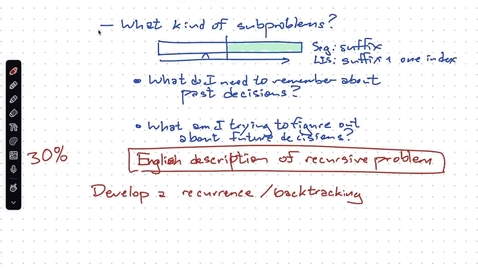 — What kind of subproblems?
Seg: suffix
LIS: suffix + one index
• What do I need to remember about
past decisions?
• What am I trying to figure out
about future decisions?
30%
English description of recursive problem
Develop a recurrence / backtracking